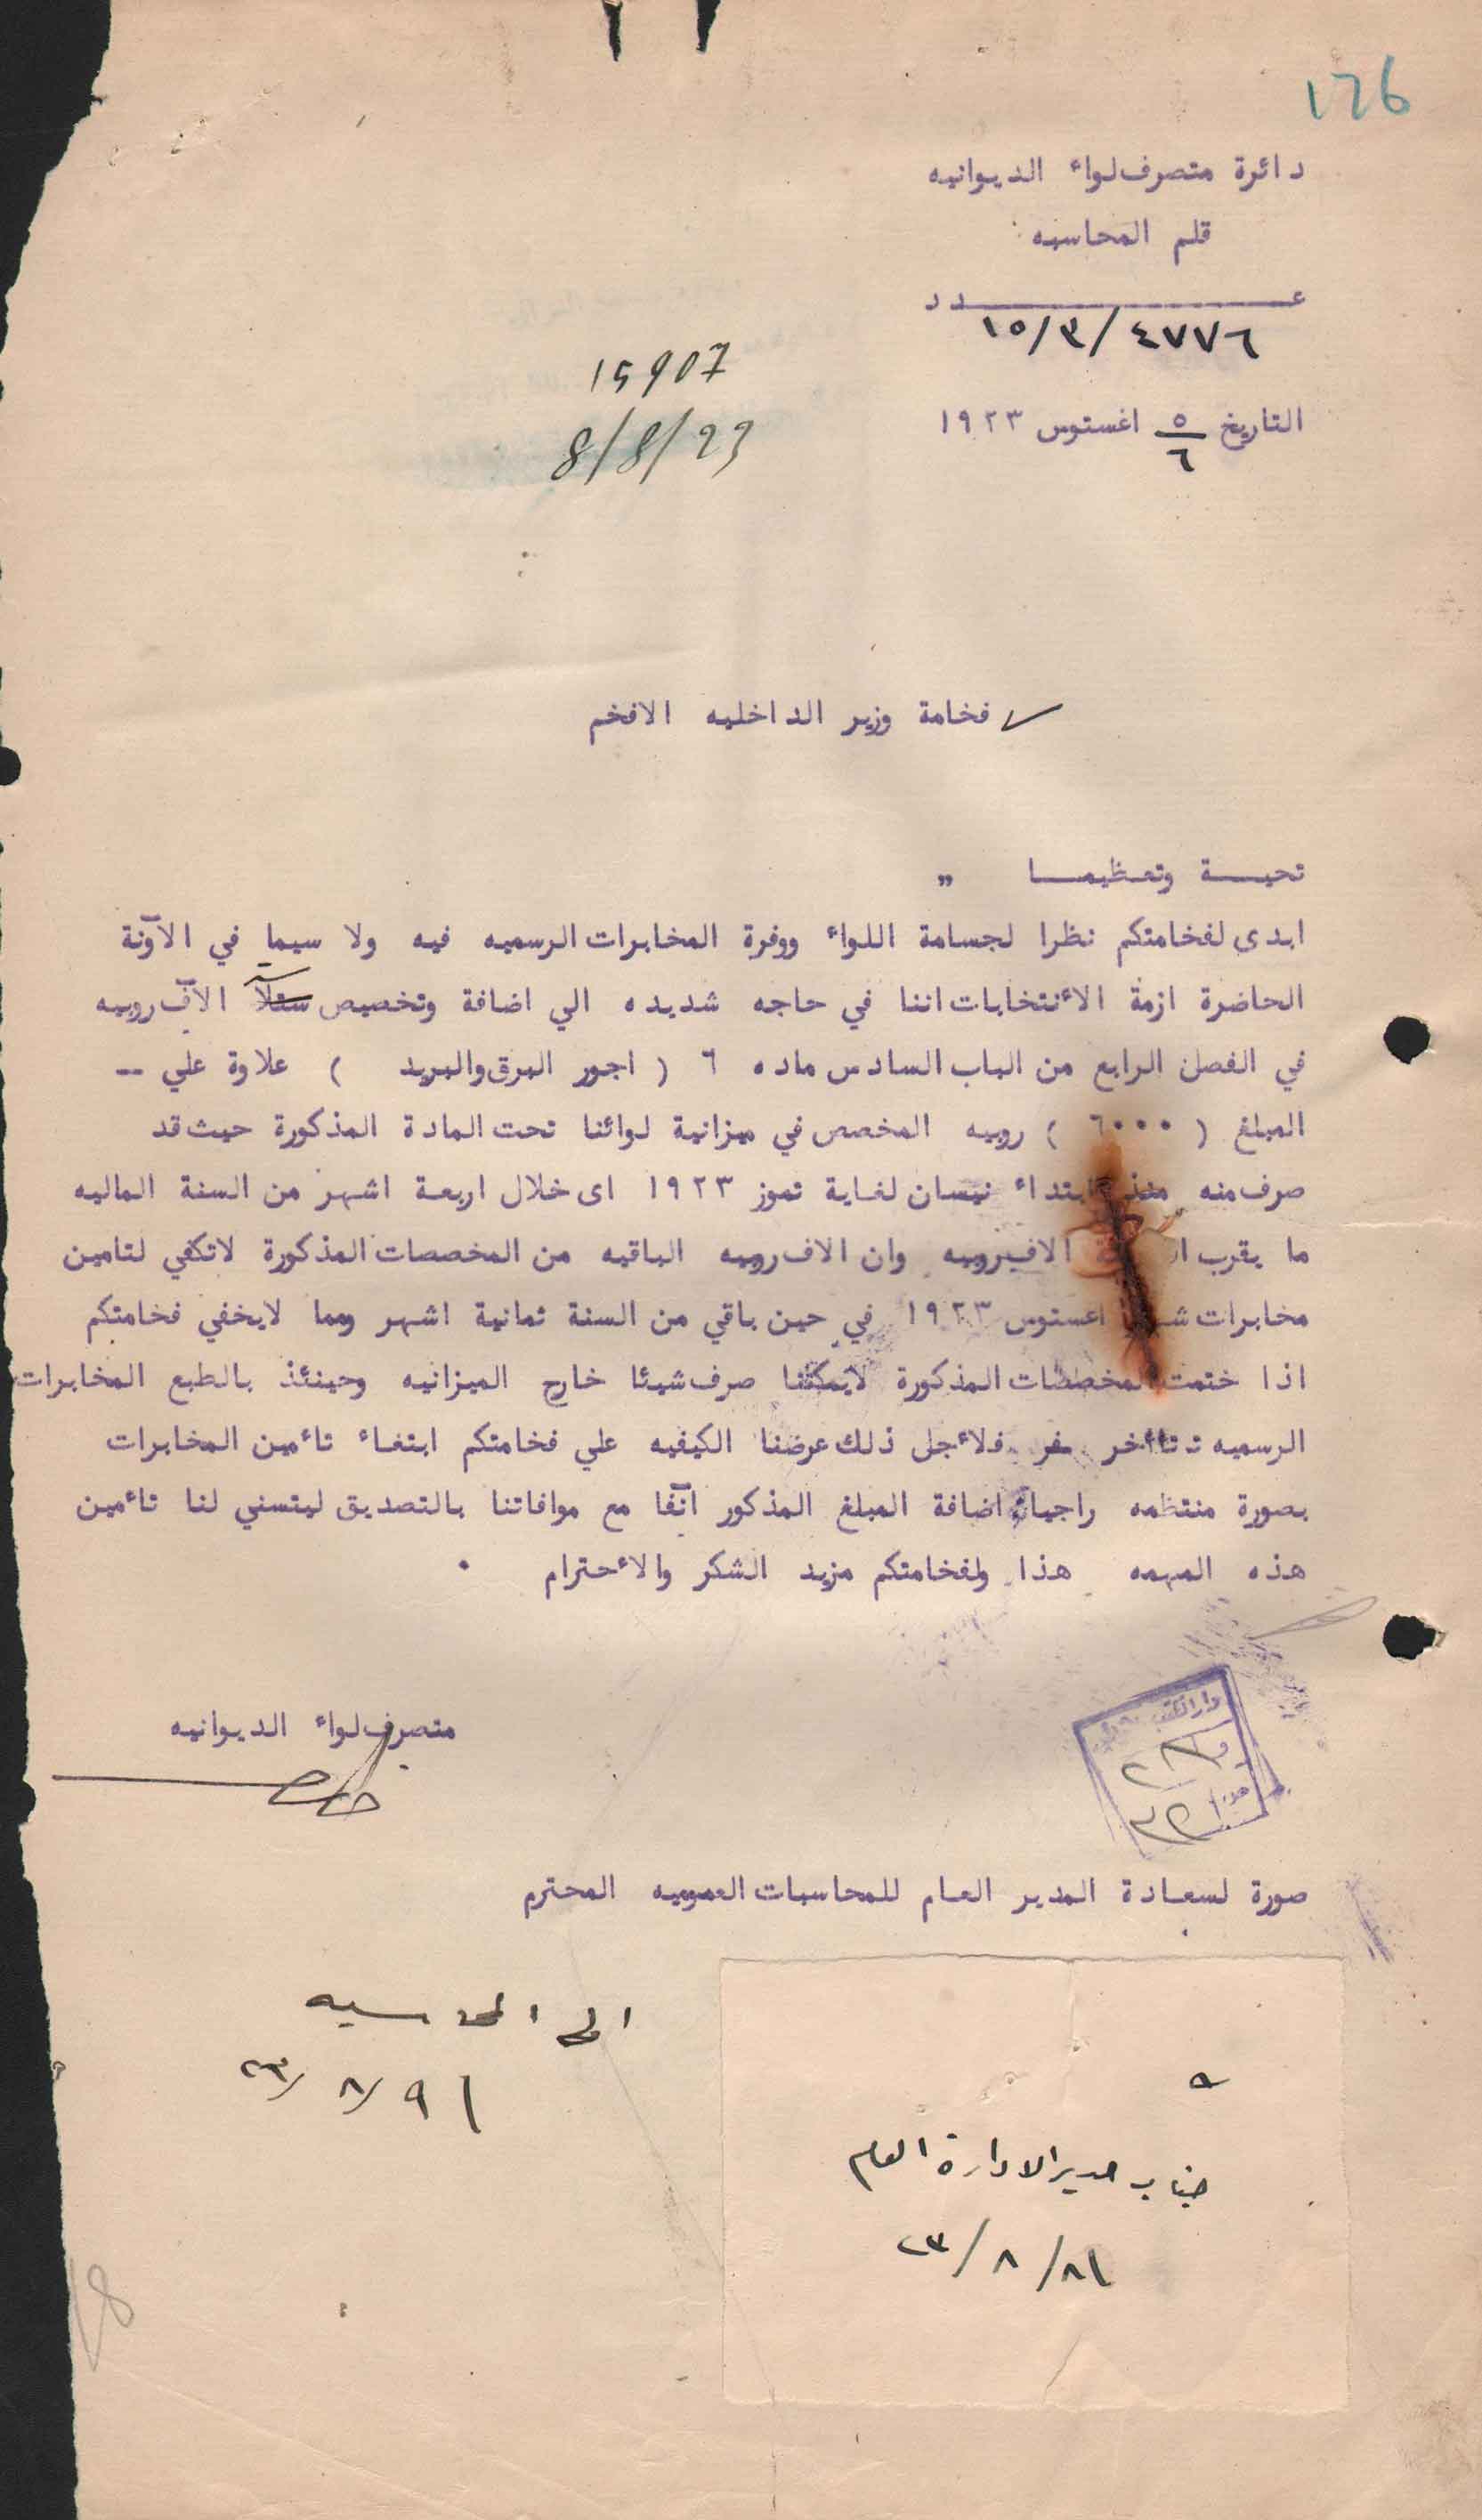 126
دائرة متصرف لواء الديوانيه
قلم المحاسبه
عـــدد
١٥/٣/٤٧٧٦
15907
8/8/23
التاريخ ٥/٦ اغستوس ١٩٢٣
فخامة وزير الداخليه الافخم
تحيـــة وتعـظيمـــا ,,
ابدى لفخامتكم نظرا لجسامة اللواء ووفرة المخابرات الرسميه فيه ولا سيما في الآونة
الحاضرة ازمة الأنتخابات اننا في حاجه شديده الي اضافة وتخصيص ستة الآف روبيه
في الفصل الرابع من الباب السادس ماده ٦ ( اجور البرق والبريد ) علاوة علي --
المبلغ ( ٦٠٠٠ ) روبيه المخصص في ميزانية لوائنا تحت المادة المذكورة حيث قد
صرف منه منذ ابتداء نيسان لغاية تموز ١٩٢٣ اى خلال اربعة اشهر من السنة الماليه
ما يقرب الاف روبيه وان الاف روبيه الباقيه من المخصصات المذكورة لاتكفي لتامين
مخابرات اغستوس ١٩٢٣ في حين باقي من السنة ثمانية اشهر ومما لايخفي فخامتكم
اذا ختمت المخصصات المذكورة لايمكننا صرف شيئا خارج الميزانيه وحينئذ بالطبع المخابرات
الرسميه تتأخر فلأجل ذلك عرضنا الكيفيه علي فخامتكم ابتغاء تأمين المخابرات
بصورة منتظمه راجيا اضافة المبلغ المذكور آنفا مع موافاتنا بالتصديق ليتسني لنا تأمين
هذه المهمه هذا ولفخامتكم مزيد الشكر والأحترام .
متصرف لواء الديوانيه
صورة لسعادة المدير العام للمحاسبات العموميه المحترم
الى المحاسبه
٩/٨/٢٣
جناب مدير الادارة العام
٨/٨/٢٣
18